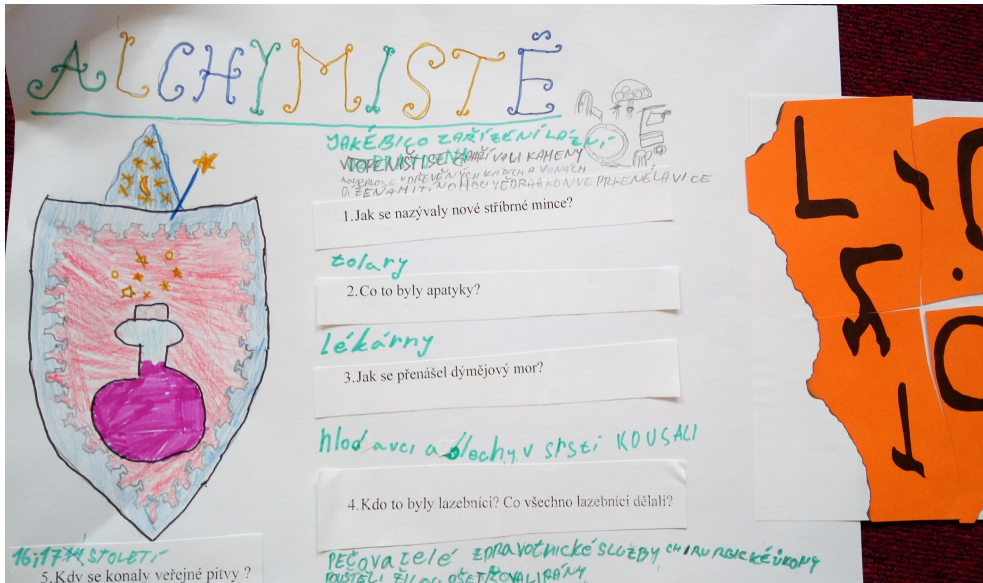 ALCHYMISTÉ
JAKÉ BILO ZAŘÍZENÍ LÁZNÍ
V TOPENIŠTI SE ZAHŘÍVALI KAMENY
V DŘEVĚNÝCH KÁDÍCH A VANÁCH
1.Jak se nazývaly nové stříbrné mince?
tolary
2.Co to byly apatyky?
lékárny
3.Jak se přenášel dýmějový mor?
hlodavci a blechy v srsti KOUSALI
4.Kdo to byly lazebníci? Co všechno lazebníci dělali?
PEČovatelé ZDRAVOTNICKÉ SLUŽBY CHIRURGICKÉ ÚKONY
POUŠTĚLI ŽILOU OŠETŘOVALI RÁNY
16;17 STOLETÍ
5.Kdy se konaly veřejné pitvy ?